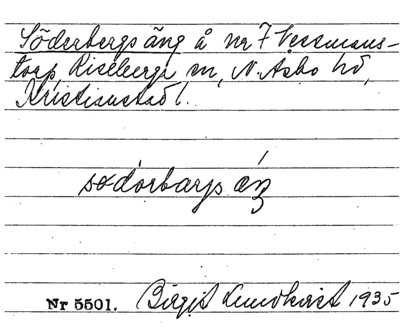 Söderbergs äng å nr 7 Vessmans-
torp, Riseberga sn, N. Åsbo hd,
Kristianstad l.
sødorbarps æŋ
Nr 5501. Birgit Lundkvist 1935